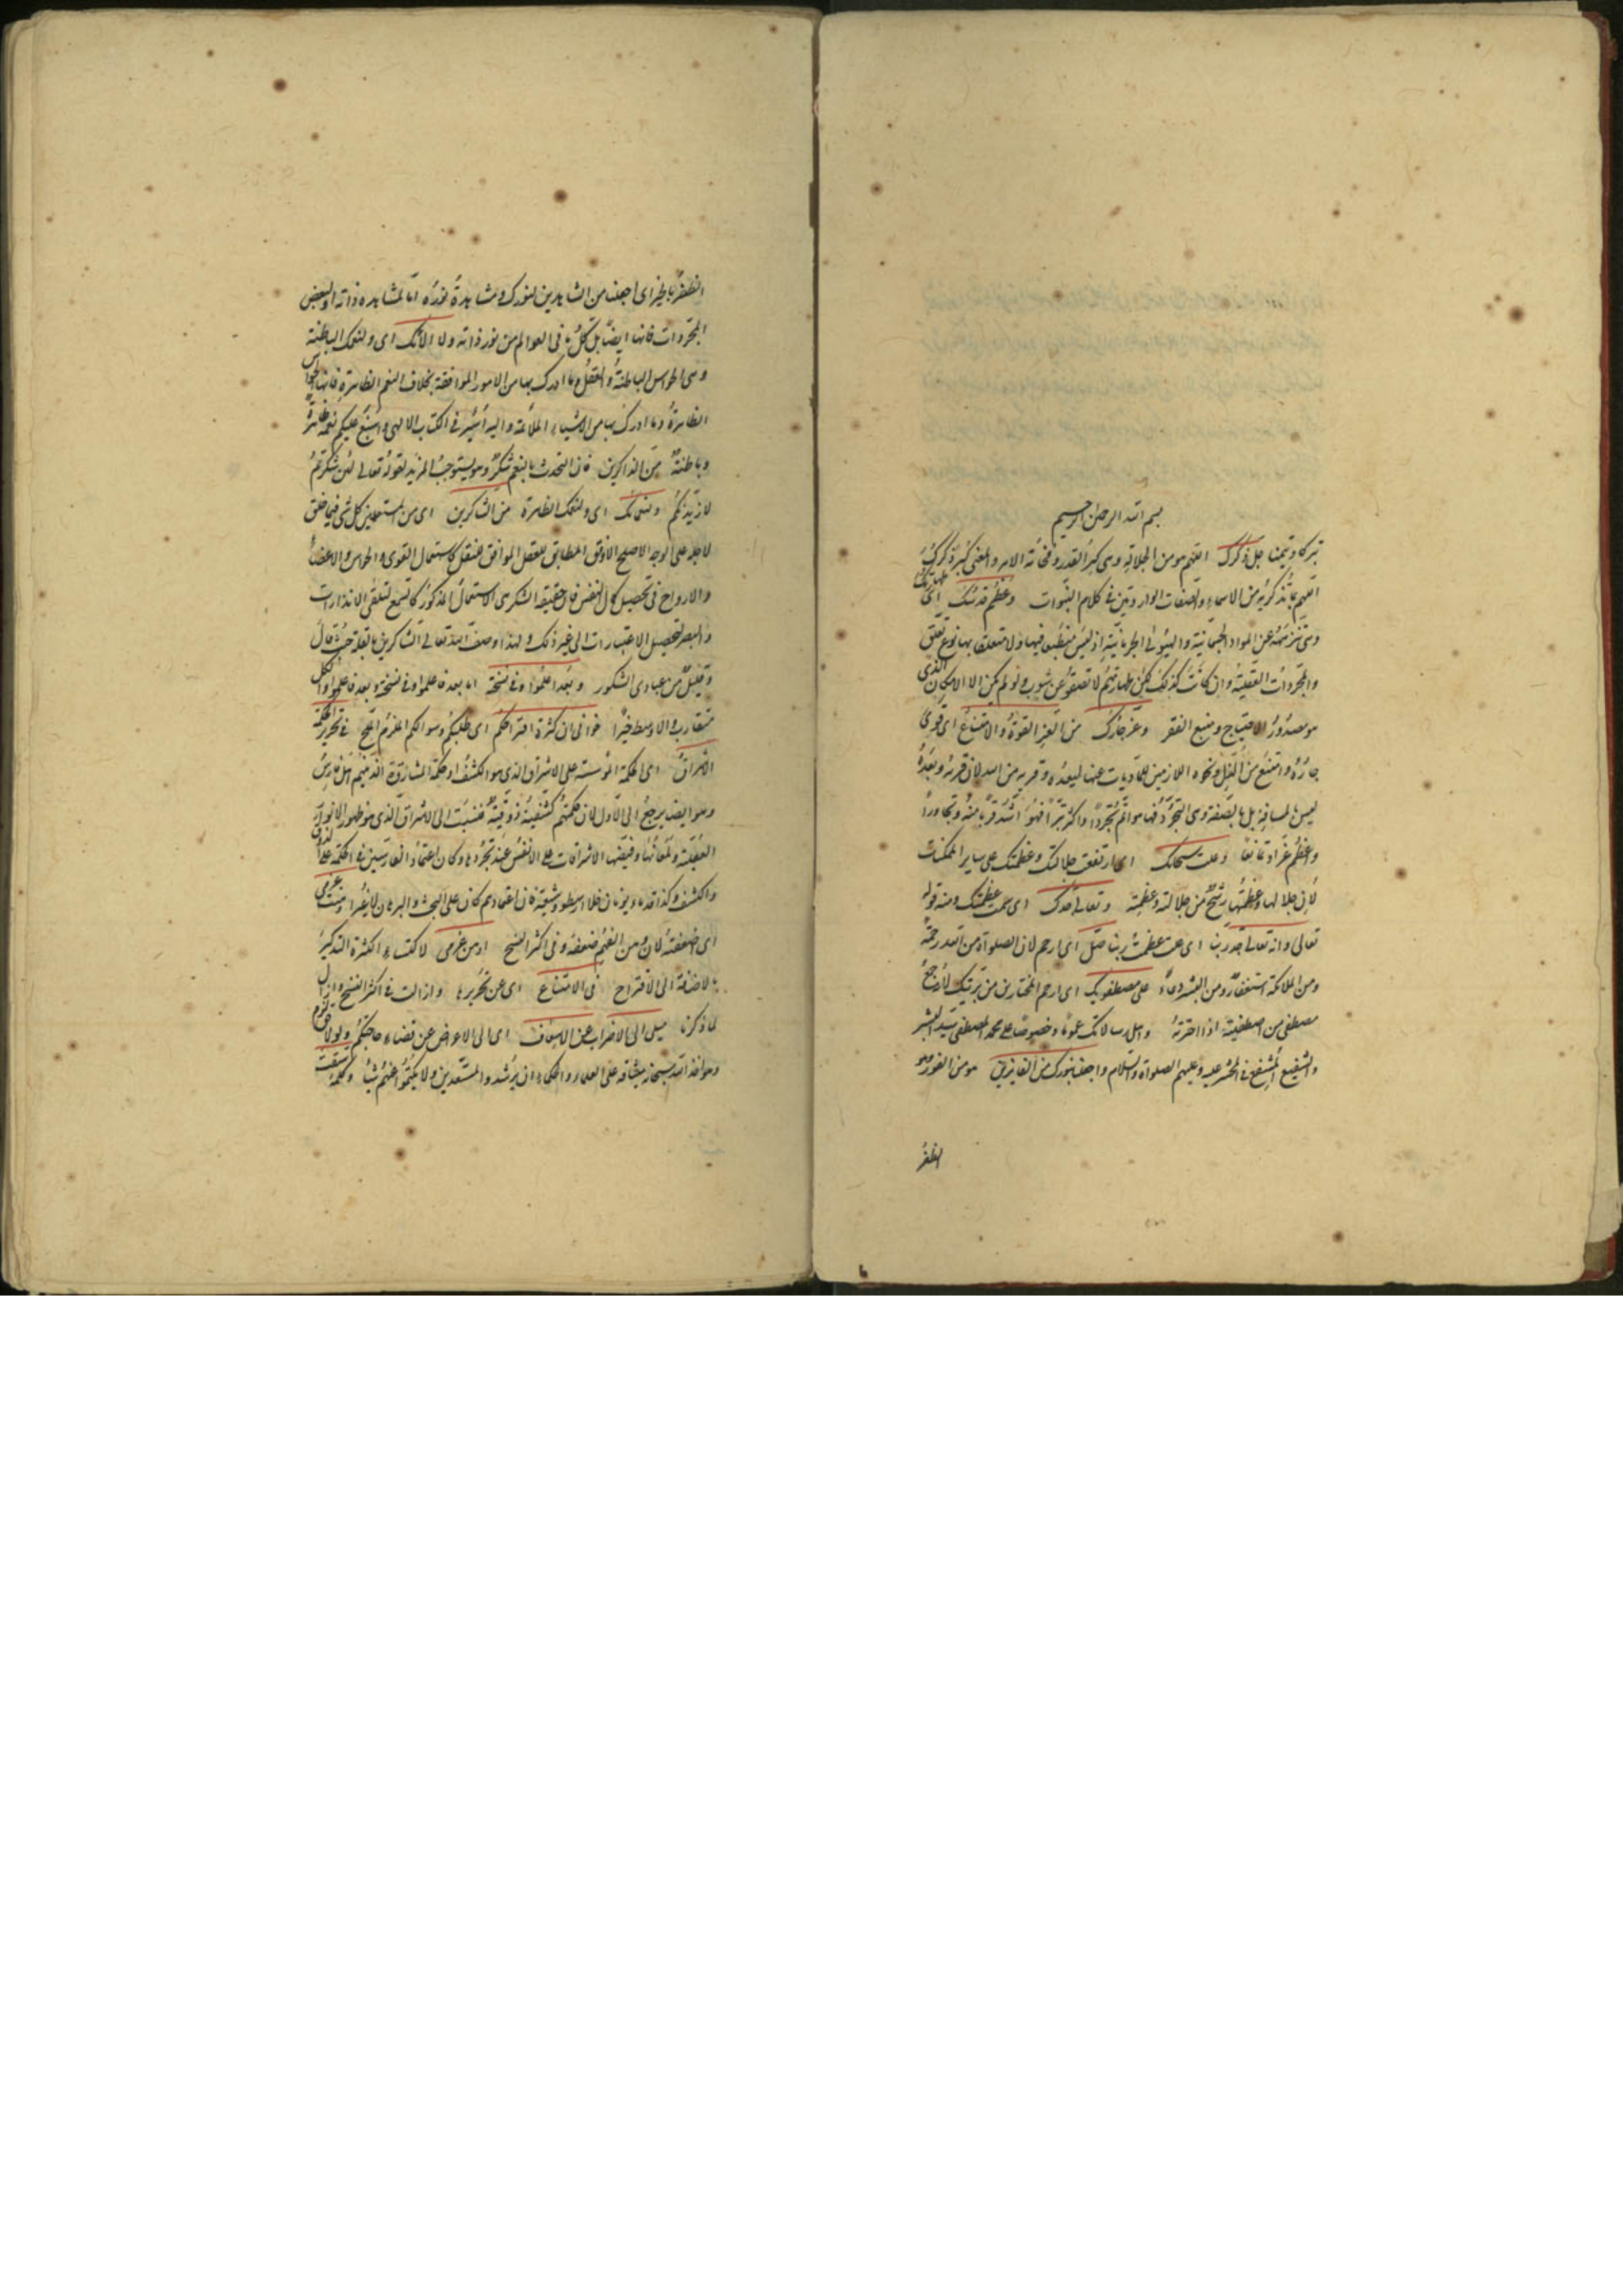 بسم الله الرحمن الرحيم
تبركا وتيمنا جل ذكرك اللهم هو من الجلالة وهى كبر القدر وفخامة الامر والمعنى كبر ذكرك
اللهم بما تذكر به من الاسماء والصفات الواردتين فى كلام النبوات وعظم قدسك اى طهارتك
وهى تنزهه عن المواد الجسمانية والهيولى الجرمانية اذ ليس منطبعا فيها ولا متعلقا بها نوع تعلق
والمجردات العقلية وان كانت كذلك لكن طهارتهم لا تصفو عن شوب ولو لم يكن الا الامكان الذى
هو مصدر الاحتياج ومنبع الفقر وعز جارك من العز القوة والامتناع اى قوى
جاره وامتنع من الذل ونحوه اللازمين للماديات عنها لبعده وقربه من الله لان قربه وبعده
ليس بالمسافة بل بالصفة وهى التجرد فما هو اتم تجردا واكثر تبرأ فهو اشد قربا منه وتجاورا
واعظم عزا وتمانعا وعلت سبحاتك اى ارتفعت جلالتك وعظمتك على ساير الممكنات
لان جلالها وعظمتها رشح من جلالته وعظمته وتعالى جدك اى سمت عظمتك ومنه قوله
تعالى وانه تعالى جد ربنا اى عت عظمة ربنا صل اى ارحم لان الصلوة من الله رحمة
ومن الملائكة استغفار ومن البشر دعاء على مصطفيك اى ارحم المختارين من بريتك لان جمع
مصطفى من اصطفيته اذا اخترته واهل رسالاتك عموما وخصوصا على محمد المصطفى سيد البشر
والشفيع المشفع فى المحشر عليه وعليهم الصلوة والسلام واجعلنا بنورك من الفايزين هو من الفوز وهو
الظفر
الظفر بالخير اى اجعلنا من الشاهدين لنورك ومشاهدة نوره اما لمشاهدة ذاته او لبعض
المجردات فانها ايضا بل كل ما فى العوالم من نور ذاته ولآلائك اى ولنعمك الباطنة
وهى الحواس الباطنة والعقل وما ادرك بها من الامور الموافقة بخلاف النعم الظاهرة فانها الحواس
الظاهرة وما ادرك بها من الاشياء الملائمة واليه اشير فى الكتاب الالهى واسبغ عليكم نعمه ظاهرة
وباطنة من الذاكرين فان التحدث بالنعم شكر وهو يستوجب المزيد لقوله تعالى لئن شكرتم
لازيدنكم ولنعمائك اى ولنعمك الظاهرة من الشاكرين اى من المستعملين كل شى فيما خلق
لاجله على الوجه الاصلح الاوفق المطابق للعقل الموافق للنقل كاستعمال القوى والحواس والاعضاء
والارواح فى تحصيل كمال النفس فان حقيقة الشكر هى الاستعمال المذكور كالسمع لتلقى الانذارات
والبصر لتحصيل الاعتبارات الى غير ذلك ولهذا وصف الله تعالى الشاكرين بالقلة حيث قال
وقليل من عبادى الشكور وبعد اعلموا وفى نسخة اما بعد فاعلموا وفى نسخة وبعد فاعلموا والكل
متقارب والاوسط خير اخوانى ان كثرة اقتراحكم اى طلبكم وسوالكم الملزم الملح فى تحرير حكمة
الاشراق اى الحكمة المؤسسة على الاشراق الذى هو الكشف او حكمة المشارقة الذين هم اهل فارس
وهو ايضا يرجع الى الاول لان حكمتهم كشفية ذوقية فنسبت الى الاشراق الذى هو ظهور الانوار
العقلية ولمعانها وفيضها بالاشراقات على الانفس عند تجردها وكان اعتماد الفارسيين فى الحكمة على الذوق
والكشف وكذا قدماء يونان خلا ارسطو وشيعته فان اعتمادهم كان على البحث والبرهان لا غير اوهنت عزمى
اى ضعفته لان وهن الغير ضعفه وفى اكثر النسخ اوهن عزمى لاكتساء الكثرة التذكير
بالاضافة الى الاقتراح فى الامتناع اى عن تحريرها وازالت فى اكثر النسخ وازال
لما ذكرنا ميلى الى الاضراب عن الاسعاف اى الى الاعراض عن قضاء حاجتكم ولولا حق لزم
وهو اخذ الله سبحانه ميثاقه على العلماء والحكماء ان يرشدوا المستعدين ولا يكتموا عنهم شيئا وكلمة سبقت